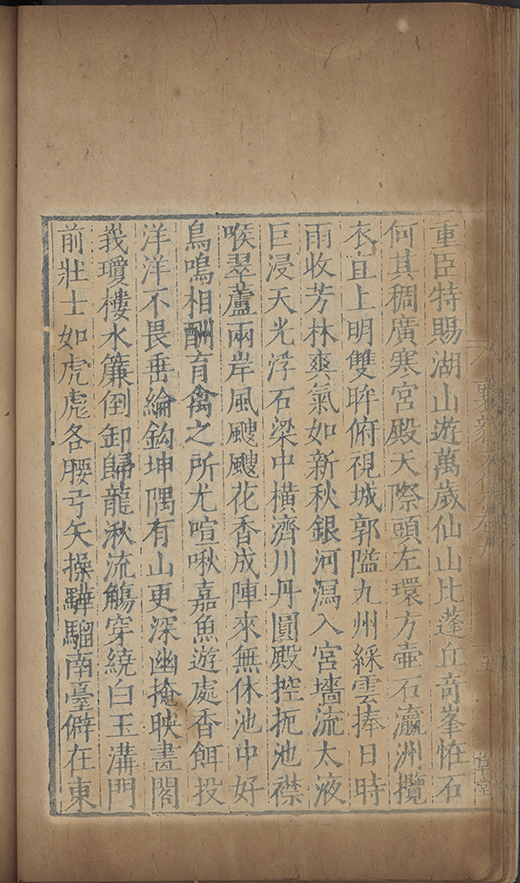 重臣特賜湖山遊萬歲仙山比蓬丘奇峯恠石
何其稠廣寒宮殿天際頭左環方壺石瀛洲攬
衣直上明雙眸俯視城郭隘九州綵雲捧日時
雨收芳林爽氣如新秋銀河瀉入宮墻流太液
巨浸天光浮石梁中橫濟川丹圓殿控扼池襟
喉翠蘆兩岸風颼颼花香成陣來無休池中好
鳥鳴相酬育禽之所尤喧啾嘉魚遊處香餌投
洋洋不畏垂綸鈎坤隅有山更深幽掩映畫閣
我瓊樓水簾倒卸歸龍湫流觴穿繞白玉溝門
前壯士如虎彪各腰弓矢操驊騮南臺僻在東